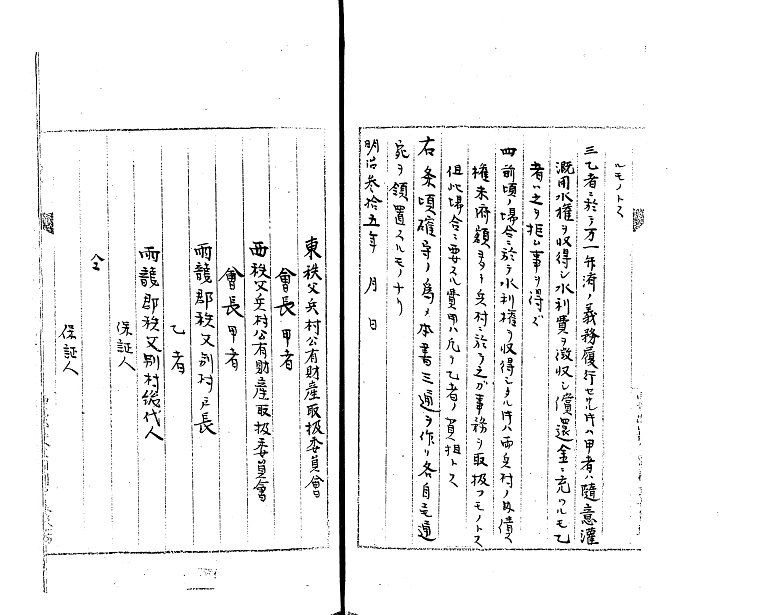 ルモノトス
三乙者ニ於テ万一弁済ノ義務履行セサル時ハ甲者ハ隨意灌
漑用水権ヲ収得シ水利費ヲ徴収シ償還金ニ充ツルモ乙
者ハ之ヲ拒ム事ヲ得ズ
四前項ノ場合ニ於テ水利権ヲ収得シタル時ハ両兵村ノ
権未済額ヲ 兵村ニ於テ之ガ事務ヲ取扱フモノトス
但此場合ニ要スル費用ハ凡テ乙者ノ負担トス
右条項確守ノ為メ本書三通ヲ作リ各自壱通
宛ヲ領置スルモノナリ
明治参拾五年 月 日
東秩父兵村公有財産取扱委員會
會長 甲者
西秩父兵村公有財産取扱委員會
會長 甲者
雨龍郡秩父別村戸長
乙者
雨龍郡秩父別村総代人
保証人
仝
保証人